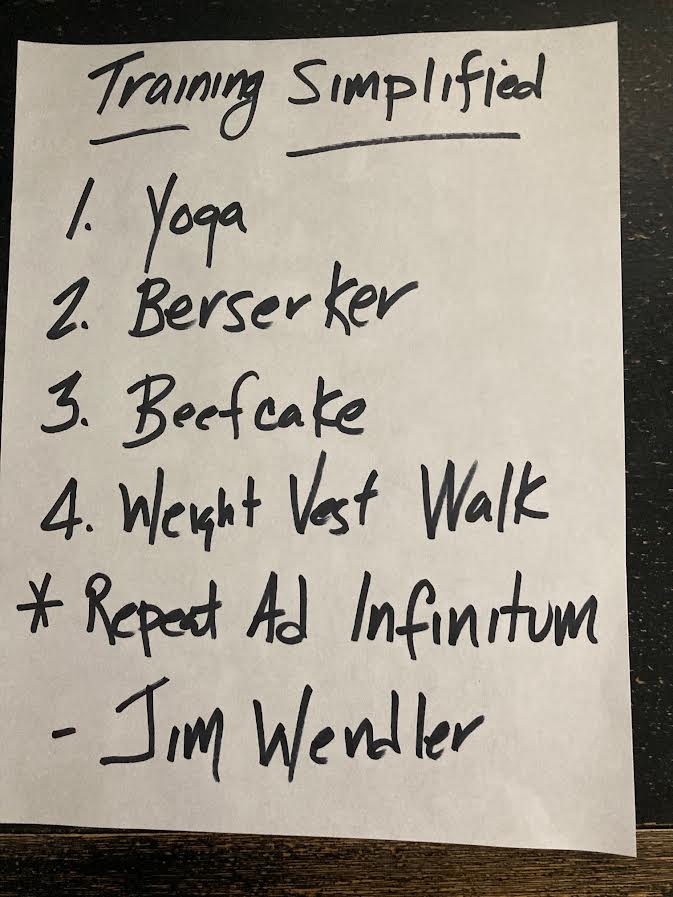 Training Simplified
1. Yoga
2. Berserker
3. Beefcake
4. Weight Vest Walk
* Repeat Ad Infinitum
- Jim Wendler